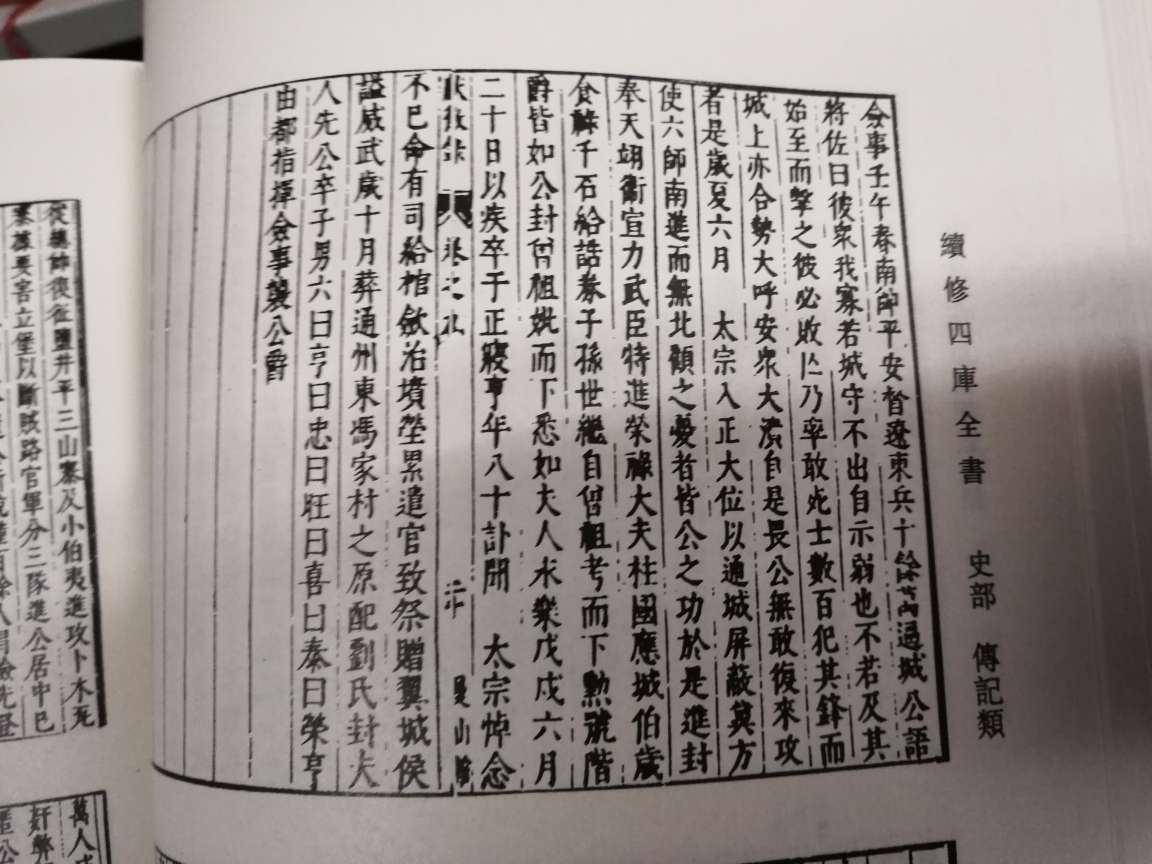 續修四庫全書 史部 傳記類
僉事壬午春南帥平安督遼東兵十餘萬過城公語
將佐曰彼衆我寡若城守不出自示弱也不若及其
始至而擊之彼必敗亡乃率敢死士數百犯其鋒而
城上亦合勢大呼安衆大潰自是長公無敢復來攻
者是歲夏六月 太宗入正大位以通城屏蔽莫方
使六師南進而無北顧之憂者皆公之功於是進封
奉天翊衛宣力武臣特進榮祿大夫柱國應城伯歲
食祿千石給誥券子孫世繼自曾祖考而下勲號階
爵皆如公封曾祖妣而下悉如夫人永樂戊戌六月
二十日以疾卒于正寢享年八十訃聞 太宗悼念
不已命有司給棺歛治墳塋累遣官致祭贈翼城侯
謚威武歲十月葬通州東馮家村之原配劉氏封夫
人先公卒子男六曰亨曰忠曰旺曰喜曰泰曰榮亨
由都指揮僉事襲公爵
從總帥復征鹽井平三山寨及小伯夷進攻卜木死
寨雄要害立堡以斷賊路官軍分三隊進公居中巳
萬人
奸弊